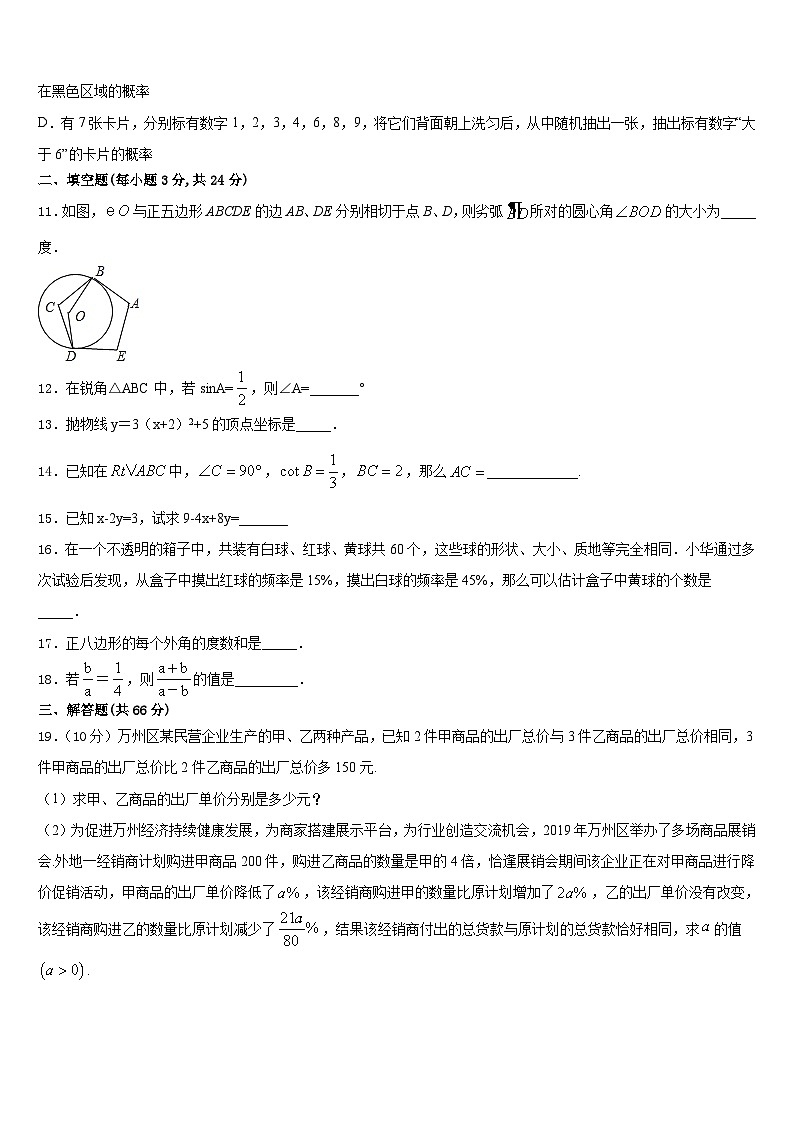 在黑色区域的概率
D．有 7 张卡片，分别标有数字 1，2，3，4，6，8，9，将它们背面朝上洗匀后，从中随机抽出一张，抽出标有数字“大
于 6”的卡片的概率
二、填空题(每小题 3 分,共 24 分)
11．如图，eO 与正五边形 ABCDE 的边 AB、DE 分别相切于点 B、D，则劣弧所对的圆心角∠BOD 的大小为_____
度．
B
C
O
A
D
E
12．在锐角△ABC 中，若 sinA=1/2，则∠A=_______°
13．抛物线 y＝3（x+2）²+5 的顶点坐标是_____．
14．已知在 Rt∨ABC 中，∠C = 90°，cot B = 1/3，BC = 2，那么 AC =_____________.
15．已知 x-2y=3，试求 9-4x+8y=_______
16．在一个不透明的箱子中，共装有白球、红球、黄球共 60 个，这些球的形状、大小、质地等完全相同．小华通过多
次试验后发现，从盒子中摸出红球的频率是 15%，摸出白球的频率是 45%，那么可以估计盒子中黄球的个数是
_____．
17．正八边形的每个外角的度数和是_____．
18．若 b/a＝1/4，则 (a＋b)/(a－b) 的值是_________．
三、解答题(共 66 分)
19．（10 分）万州区某民营企业生产的甲、乙两种产品，已知 2 件甲商品的出厂总价与 3 件乙商品的出厂总价相同，3
件甲商品的出厂总价比 2 件乙商品的出厂总价多 150 元.
（1）求甲、乙商品的出厂单价分别是多少元？
（2）为促进万州经济持续健康发展，为商家搭建展示平台，为行业创造交流机会，2019 年万州区举办了多场商品展销
会.外地一经销商计划购进甲商品 200 件，购进乙商品的数量是甲的 4 倍，恰逢展销会期间该企业正在对甲商品进行降
价促销活动，甲商品的出厂单价降低了 a%，该经销商购进甲的数量比原计划增加了 2a%，乙的出厂单价没有改变，
该经销商购进乙的数量比原计划减少了 21a/80 %，结果该经销商付出的总货款与原计划的总货款恰好相同，求 a 的值
(a > 0).